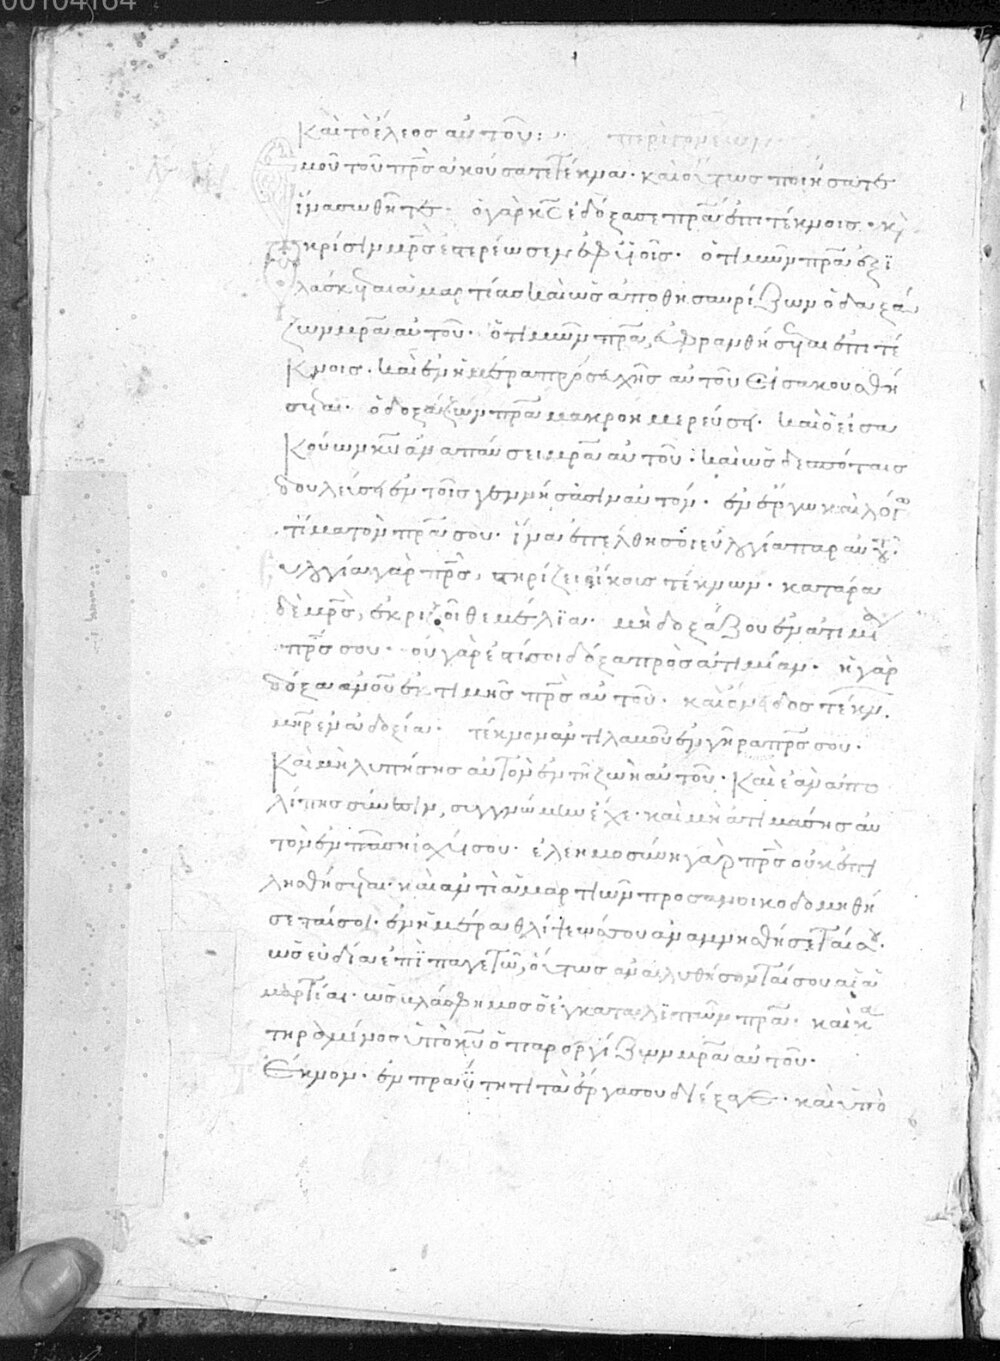 00104164
καὶ τὸ ἔλεος αὐτοῦ: περὶ γονέων
μοῦ τοῦ πρ̅ς̅ ἀκούσατε τέκνα· καὶ οὕτως ποιήσατε
ἵνα σωθῆτε· ὁ γὰρ κ̅ς̅ ἐδόξασε πρ̅α̅ ἐπὶ τέκνοις· κ̀
κρίσιν μρ̅ς̅ ἐστερέωσεν ἐφ' υἱοῖς· ὁ τιμῶν πρ̅α̅ ἐξι
λάσκεται ἁμαρτίας καὶ ὡς ἀποθησαυρίζων ὁ δοξά
ζων μρ̅α̅ αὐτοῦ· ὁ τιμῶν πρ̅α̅, εὐφρανθήσεται ἐπὶ τέ
κνοις· καὶ ἐν ἡμέρα προσευχῆς αὐτοῦ εἰσακουσθή
σεται· ὁ δοξάζων πρ̅α̅ μακροημερεύσει· καὶ ὁ εἰσα
κούων κ̅υ̅ ἀναπαύσει μρ̅α̅ αὐτοῦ· καὶ ὡς δεσπόταις
δουλεύσει ἐν τοῖς γεννήσασιν αὐτόν· ἐν ἔργω καὶ λόγω
τίμα τὸν πρ̅α̅ σου· ἵνα ἐπέλθη σοι εὐλογία παρ αὐτοῦ·
εὐλογία γὰρ πρ̅ς̅, στηρίζει οἴκους τέκνων· κατάρα
δὲ μρ̅ς̅, ἐκριζοῖ θεμέλια· μὴ δοξάζου ἐν ἀτιμία
πρ̅ς̅ σου· οὐ γὰρ ἐστί σοι δόξα πρὸς ἀτιμίαν· ἡ γὰρ
δόξα ἀνοῦ ἐκ τιμῆς πρ̅ς̅ αὐτοῦ· καὶ ὄνειδος τέκν
μηρ ἐν ἀδοξία· τέκνον ἀντιλαβοῦ ἐν γήρα πρ̅ς̅ σου·
καὶ μὴ λυπήσης αὐτὸν ἐν τῆ ζωῆ αὐτοῦ· κἂν ἀπο
λίπη σύνεσιν, συγγνώμην ἔχε· καὶ μὴ ἀτιμάσης αὐ
τὸν ἐν πάση ἰσχύι σου· ἐλεημοσύνη γὰρ πρ̅ς̅ οὐκ ἐπι
λησθήσεται· καὶ ἀντὶ ἁμαρτιῶν προσανοικοδομηθή
σεταί σοι· ἐν ἡμέρα θλίψεώς σου ἀναμνησθήσεταί σου·
ὡς εὐδία ἐπὶ παγετῶ, οὕτως ἀναλυθήσονταί σου αἱ ἁ
μαρτίαι· ὡς βλάσφημος ὁ ἐγκαταλειπὼν πρ̅α̅· καὶ κα
τηραμένος ὑπὸ κ̅υ̅ ὁ παροργίζων μρ̅α̅ αὐτοῦ·
τέκνον· ἐν πραΰτητι τὰ ἔργα σου διέξαγε· καὶ ὑπὸ